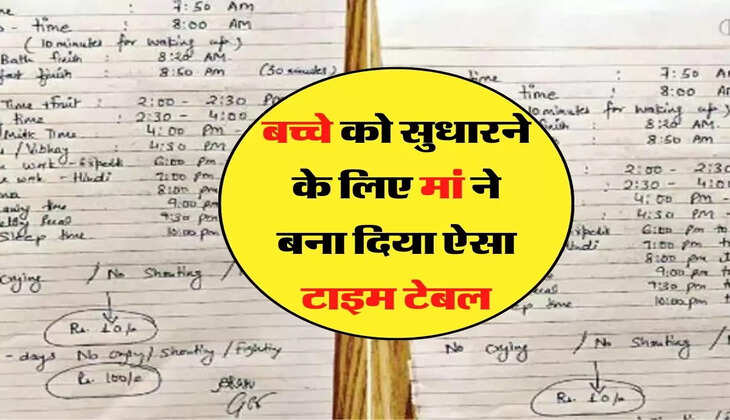 time : 7:50 AM
- time : 8:00 AM
(10 minutes for waking up)
Bath finish : 8:20 AM.
fast finish : 8:50 AM (30 minutes)
Time +Fruit : 2:00 - 2:30 PM
time : 2:30 - 4:00
Milk Time : 4:00 PM -
/ Vibhay : 4:30 PM
work - : 6:00 PM
work - Hindi : 7:00 PM
8:00 PM
time 9:00 PM
9:30 PM
Sleep time 10:00 PM
Crying / No Shouting /
Rs. 10/-
- days No Crying / Shouting / Fighting
Rs. 100/-
बच्चे को सुधारने
के लिए मां ने
बना दिया ऐसा
टाइम टेबल
time : 7:50 AM
time : 8:00 AM
10 minutes for waking up)
finish : 8:20 AM.
: 8:50 AM
: 2:00 - 2:30
: 2:30 - 4:
: 4:00 PM -
: 4:30 PM -
6:00 PM to
Hindi : 7:00 PM to
8:00 PM
9:00 PM to
9:30 PM to
time 10:00 PM
No Crying / No Shouting /
Rs. 10/-